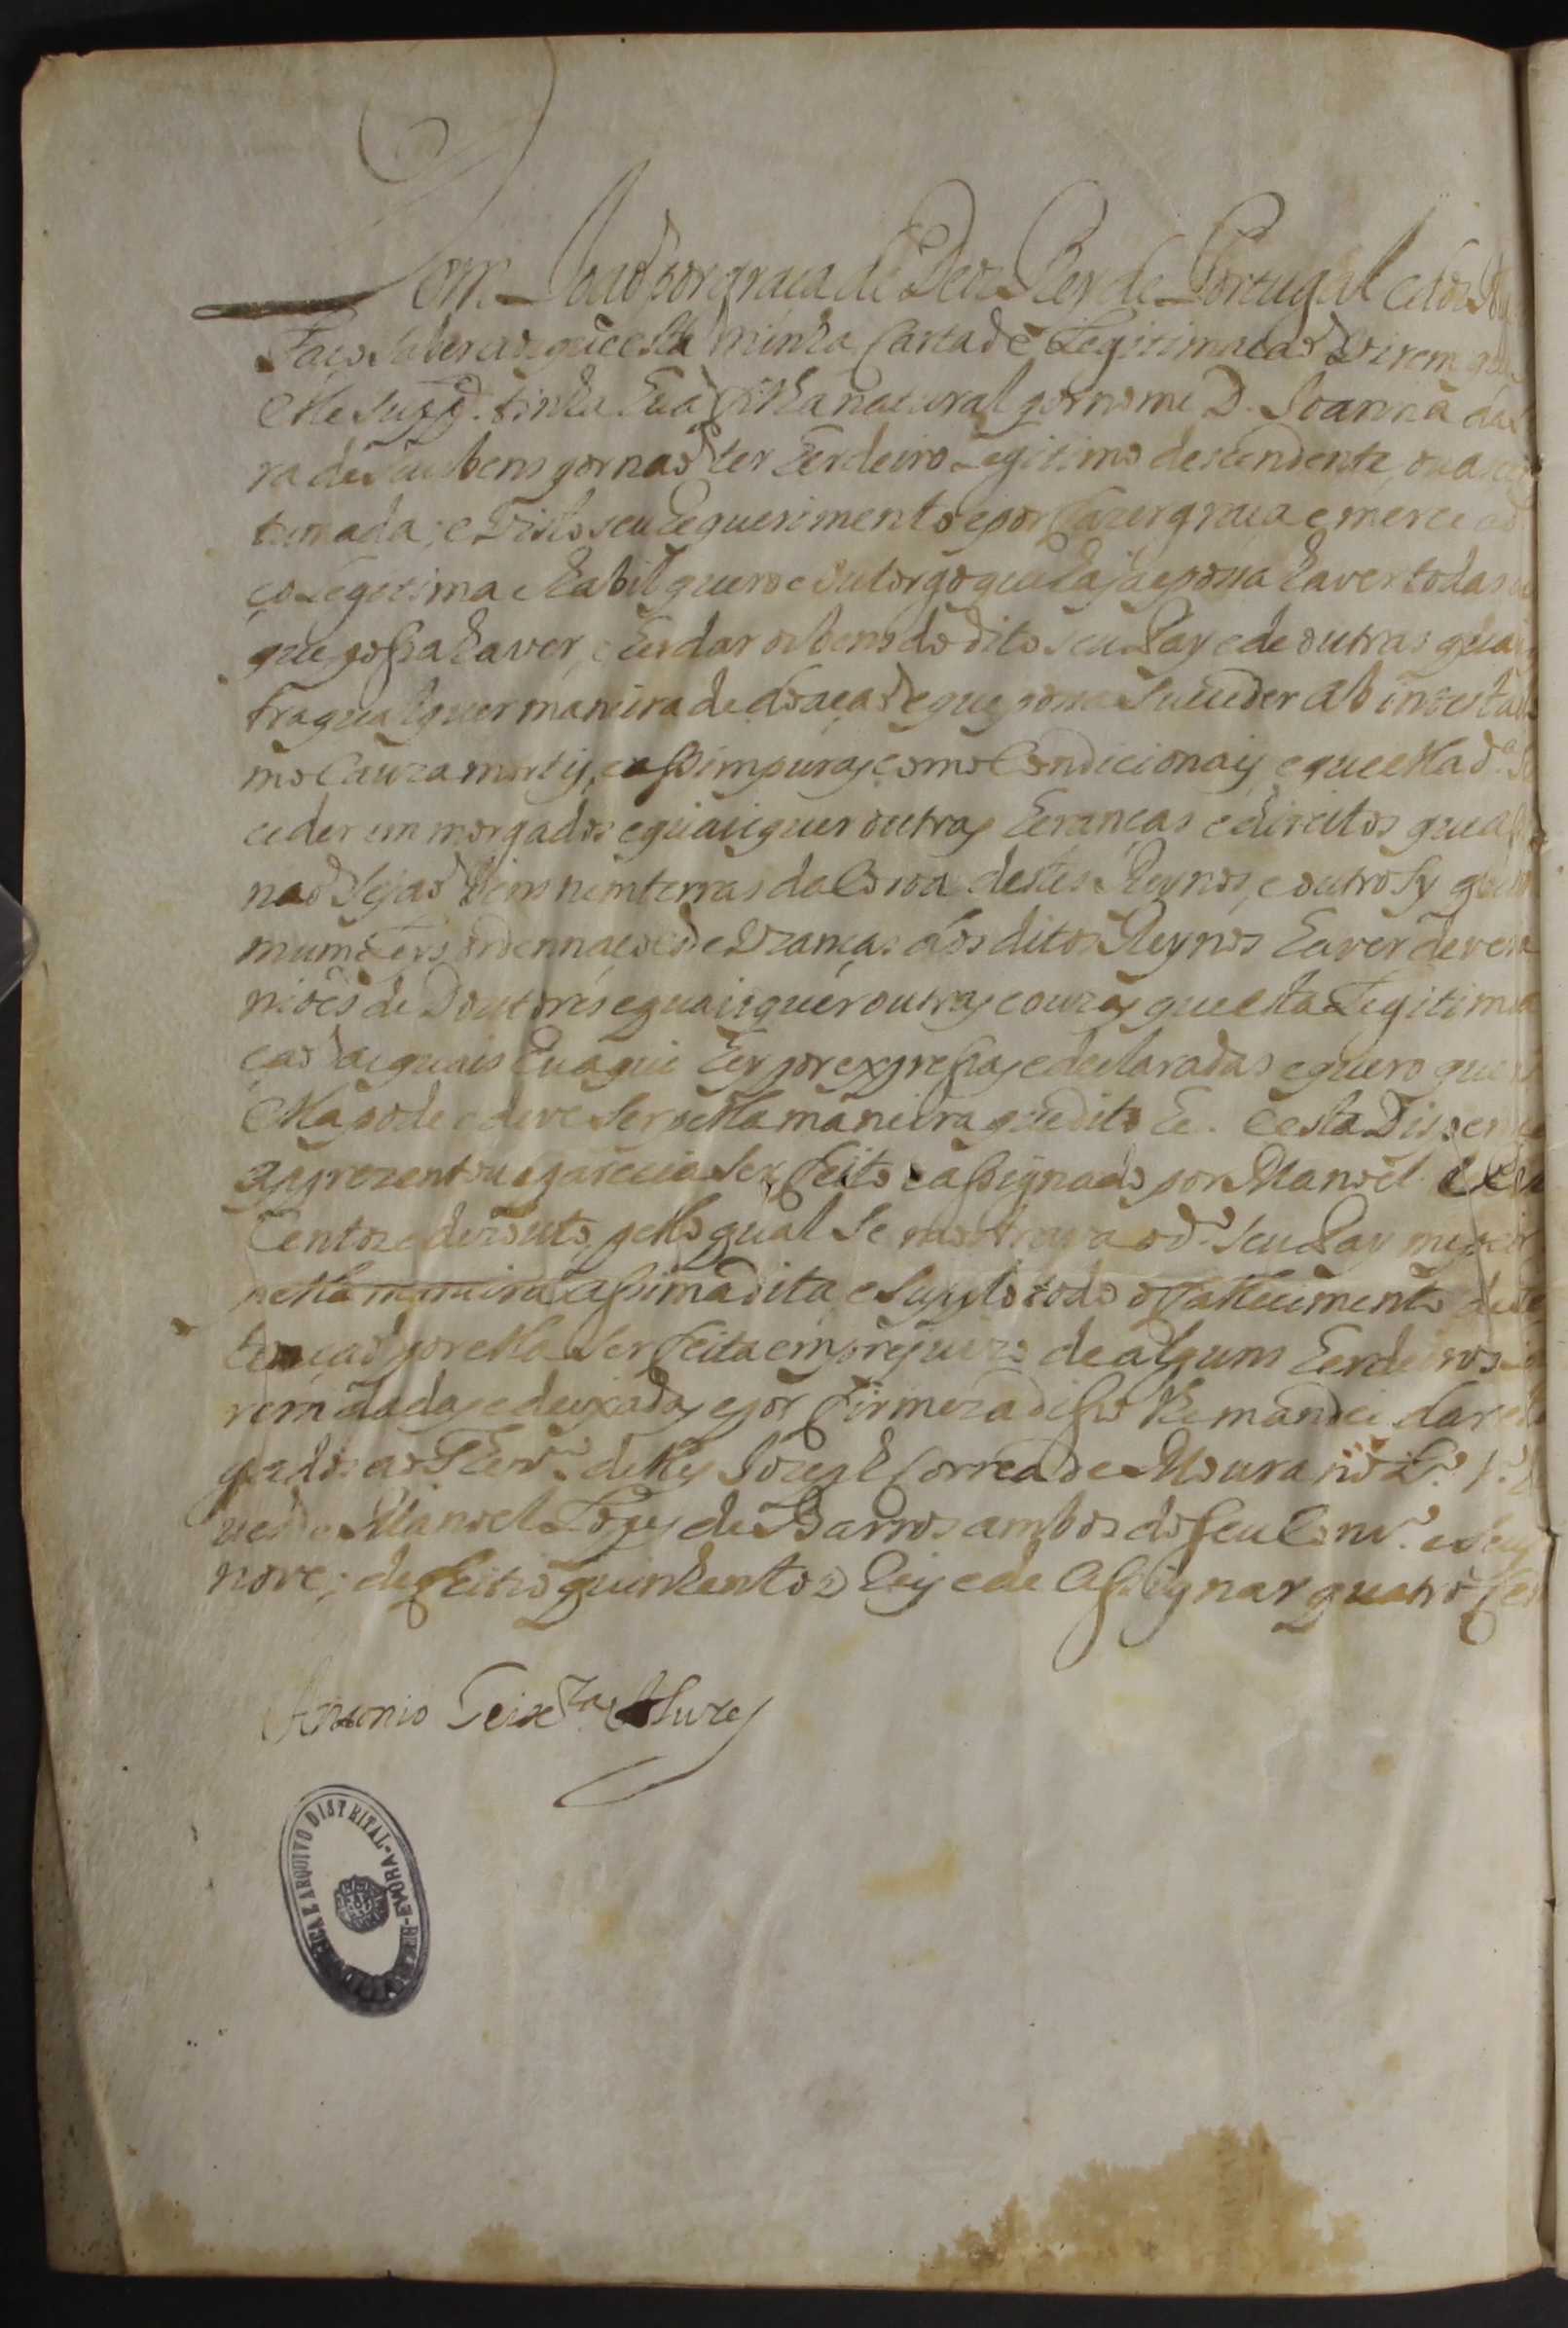 Dom Joaõ por graça de Deos Rey de Portugal e dos
Faço saber aos que esta minha Carta de Legitimaçaõ virem que
elle supp.te tinha hũa filha natural por nome D. Joanna da
ra de seus bens por naõ ter herdeiro legitimo descendente, ou ascen
tumada; e visto seu requerimento e por fazer graça e merce ao
ço legitima e habil quero e outorgo que haja e possa haver todas
que possa haver, e herdar os bens do dito seu Pay e de outras quais
tra qualquer maneira de doaçaõ e que possa suceder ab intestado
mo cauza mortis, e assim puras como condicionais, e que ella d.a
ceder em morgados e quaisquer outras heranças e direitos que
naõ sejaõ bens nem terras da Coroa destes Reynos, e outro sy
mum Leys ordennaçoẽs e uzanças dos ditos Reynos haver deve
nioẽs de Doutores e quaisquer outras couzas que esta Legitima
çaõ as quais Eu aqui hey por expressas e declaradas e quero que
ella pode e deve ser pella maneira que dito he. E esta Dispen
aprezentou e parecia ser feito e assignado por Manoel
Centos e dezouto, pello qual se mostrava o d.o seu Pay
pella maneira assima dita e supplo todo o fallecimento
tençaõ por ella ser feita em prejuizo de alguns herdeiros
rem dadas e deixadas e por firmeza disso lhe mandei dar
gados ao Thezr.o delles Jozeph Correa de Moura no L.o 1.o
ves e Manoel Lopes de Barros ambos do seu Cons.o e seus
nove; de feitio quinhentos reis e de Assignar quatro cen
Antonio Teix.ra Alvrez
BIBLIOTECA E ARQUIVO DISTRITAL-EVORA